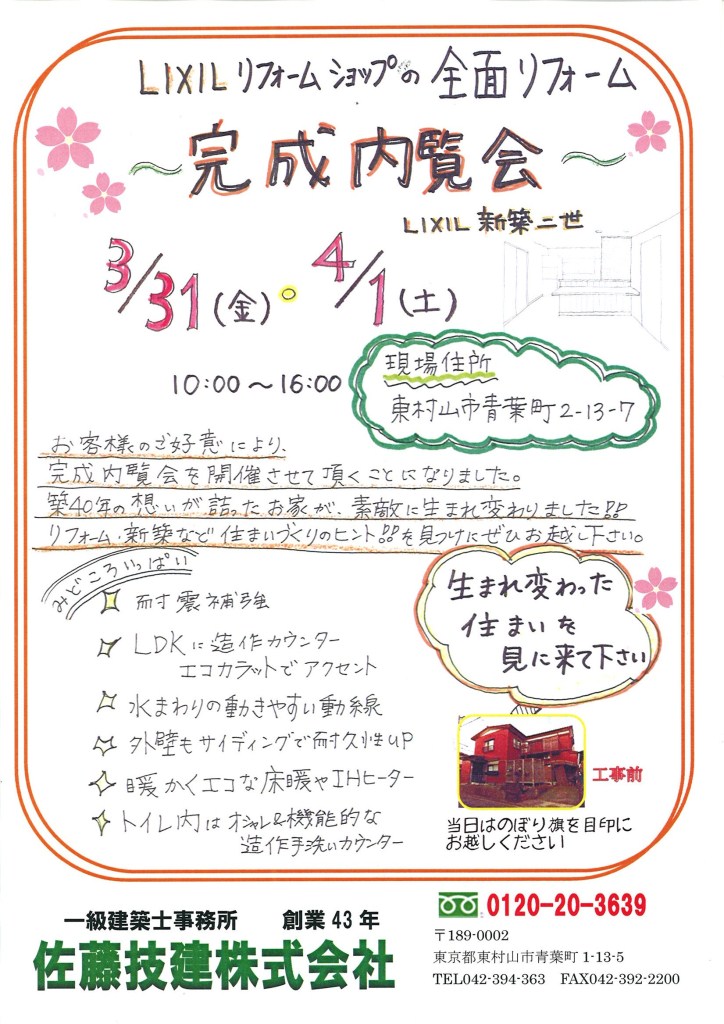 LIXILリフォームショップの全面リフォーム
～完成内覧会～
LIXIL 新築二世
3/31(金)。4/1(土)
10:00～16:00
現場住所
東村山市青葉町2-13-7
お客様のご好意により、
完成内覧会を開催させて頂くことになりました。
築40年の想いが詰ったお家が、素敵に生まれ変わりました!!
リフォーム・新築など住まいづくりのヒント!!を見つけにぜひお越し下さい。
みどころいっぱい
耐震補強
LDKに造作カウンター
エコカラットでアクセント
水まわりの動きやすい動線
外壁もサイディングで耐久性UP
暖かくエコな床暖やIHヒーター
トイレ内はオシャレ&機能的な
造作手洗いカウンター
生まれ変わった
住まいを
見に来て下さい
工事前
当日はのぼり旗を目印に
お越しください
一級建築士事務所 創業43年
佐藤技建株式会社
0120-20-3639
〒189-0002
東京都東村山市青葉町1-13-5
TEL042-394-363 FAX042-392-2200